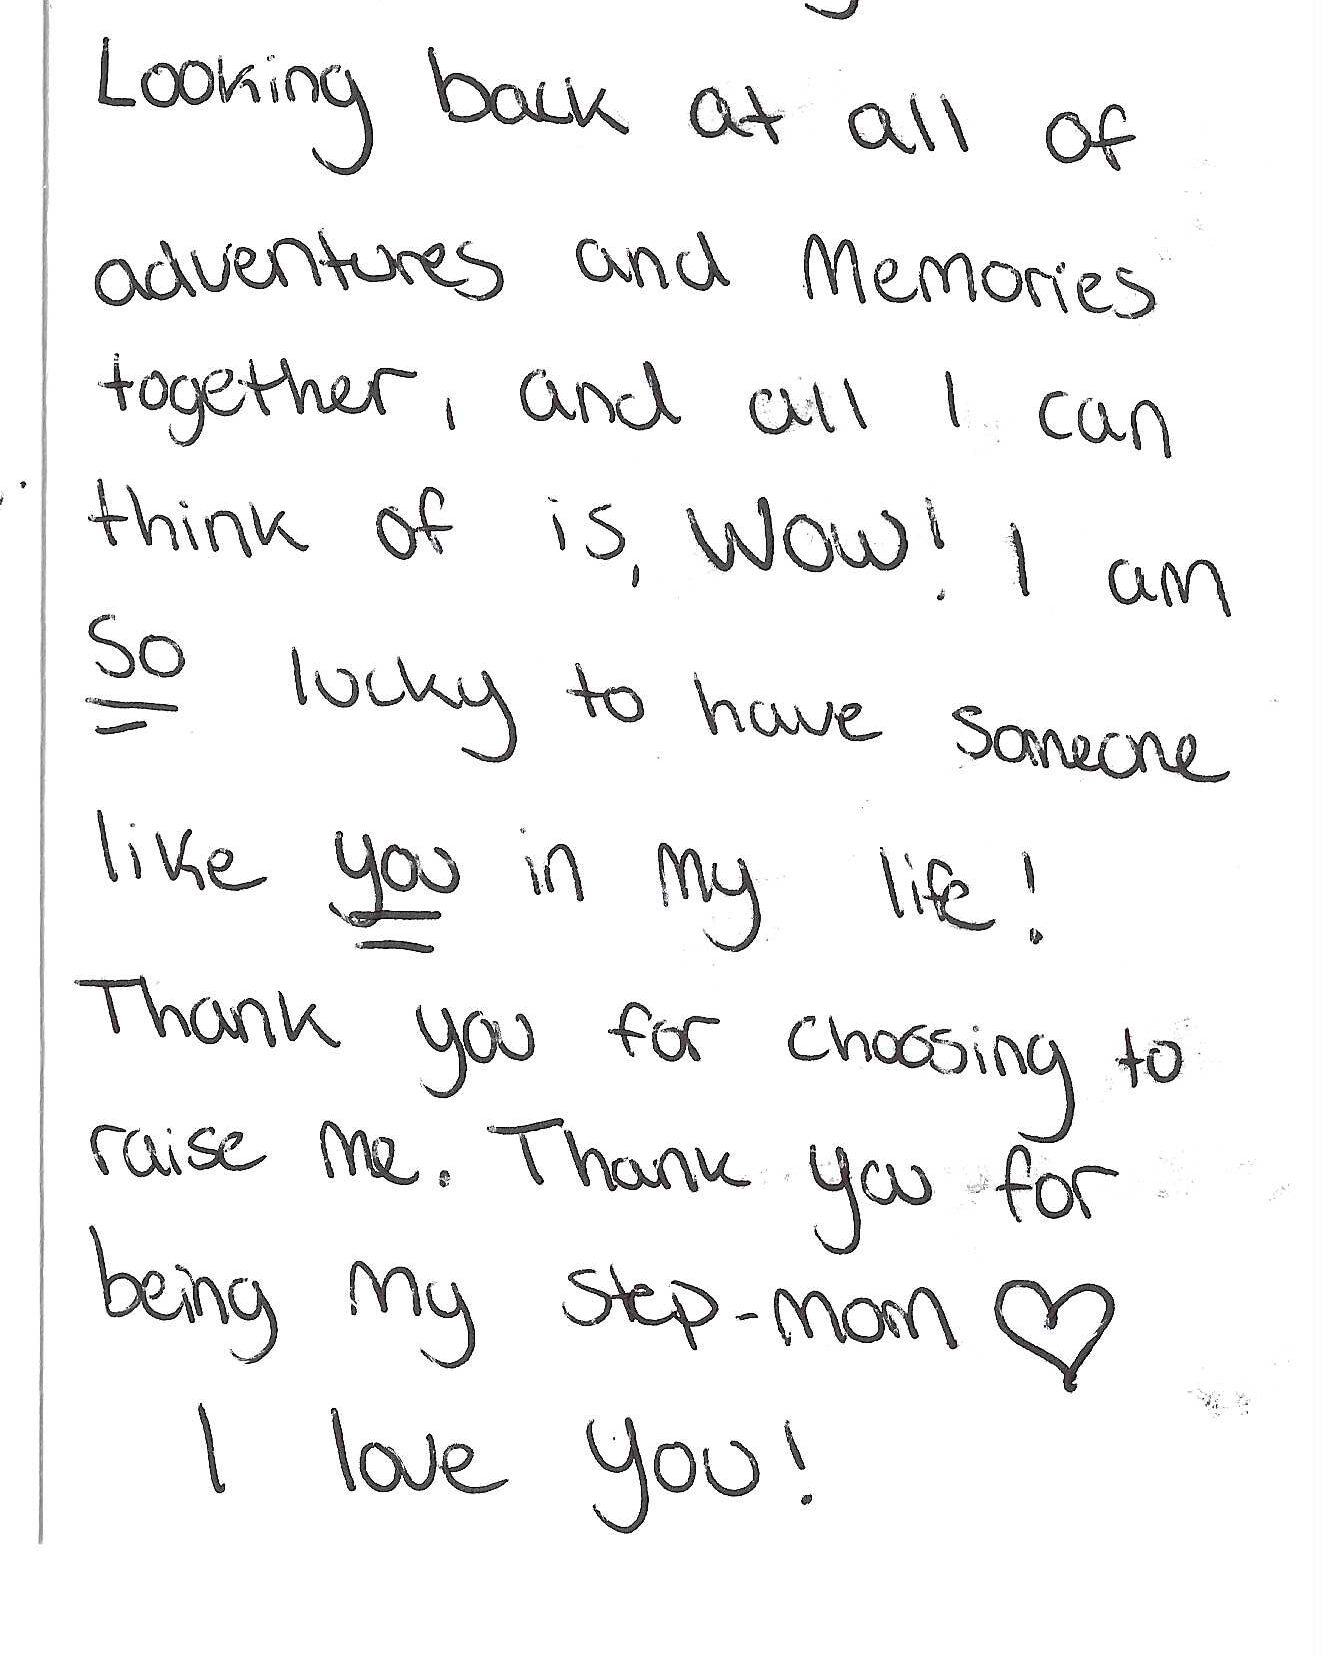 Looking back at all of
adventures and Memories
together, and all I can
think of is, WOW! I am
So lucky to have someone
like you in my life!
Thank you for choosing to
raise me. Thank you for
being my step-mom ♡
I love you!